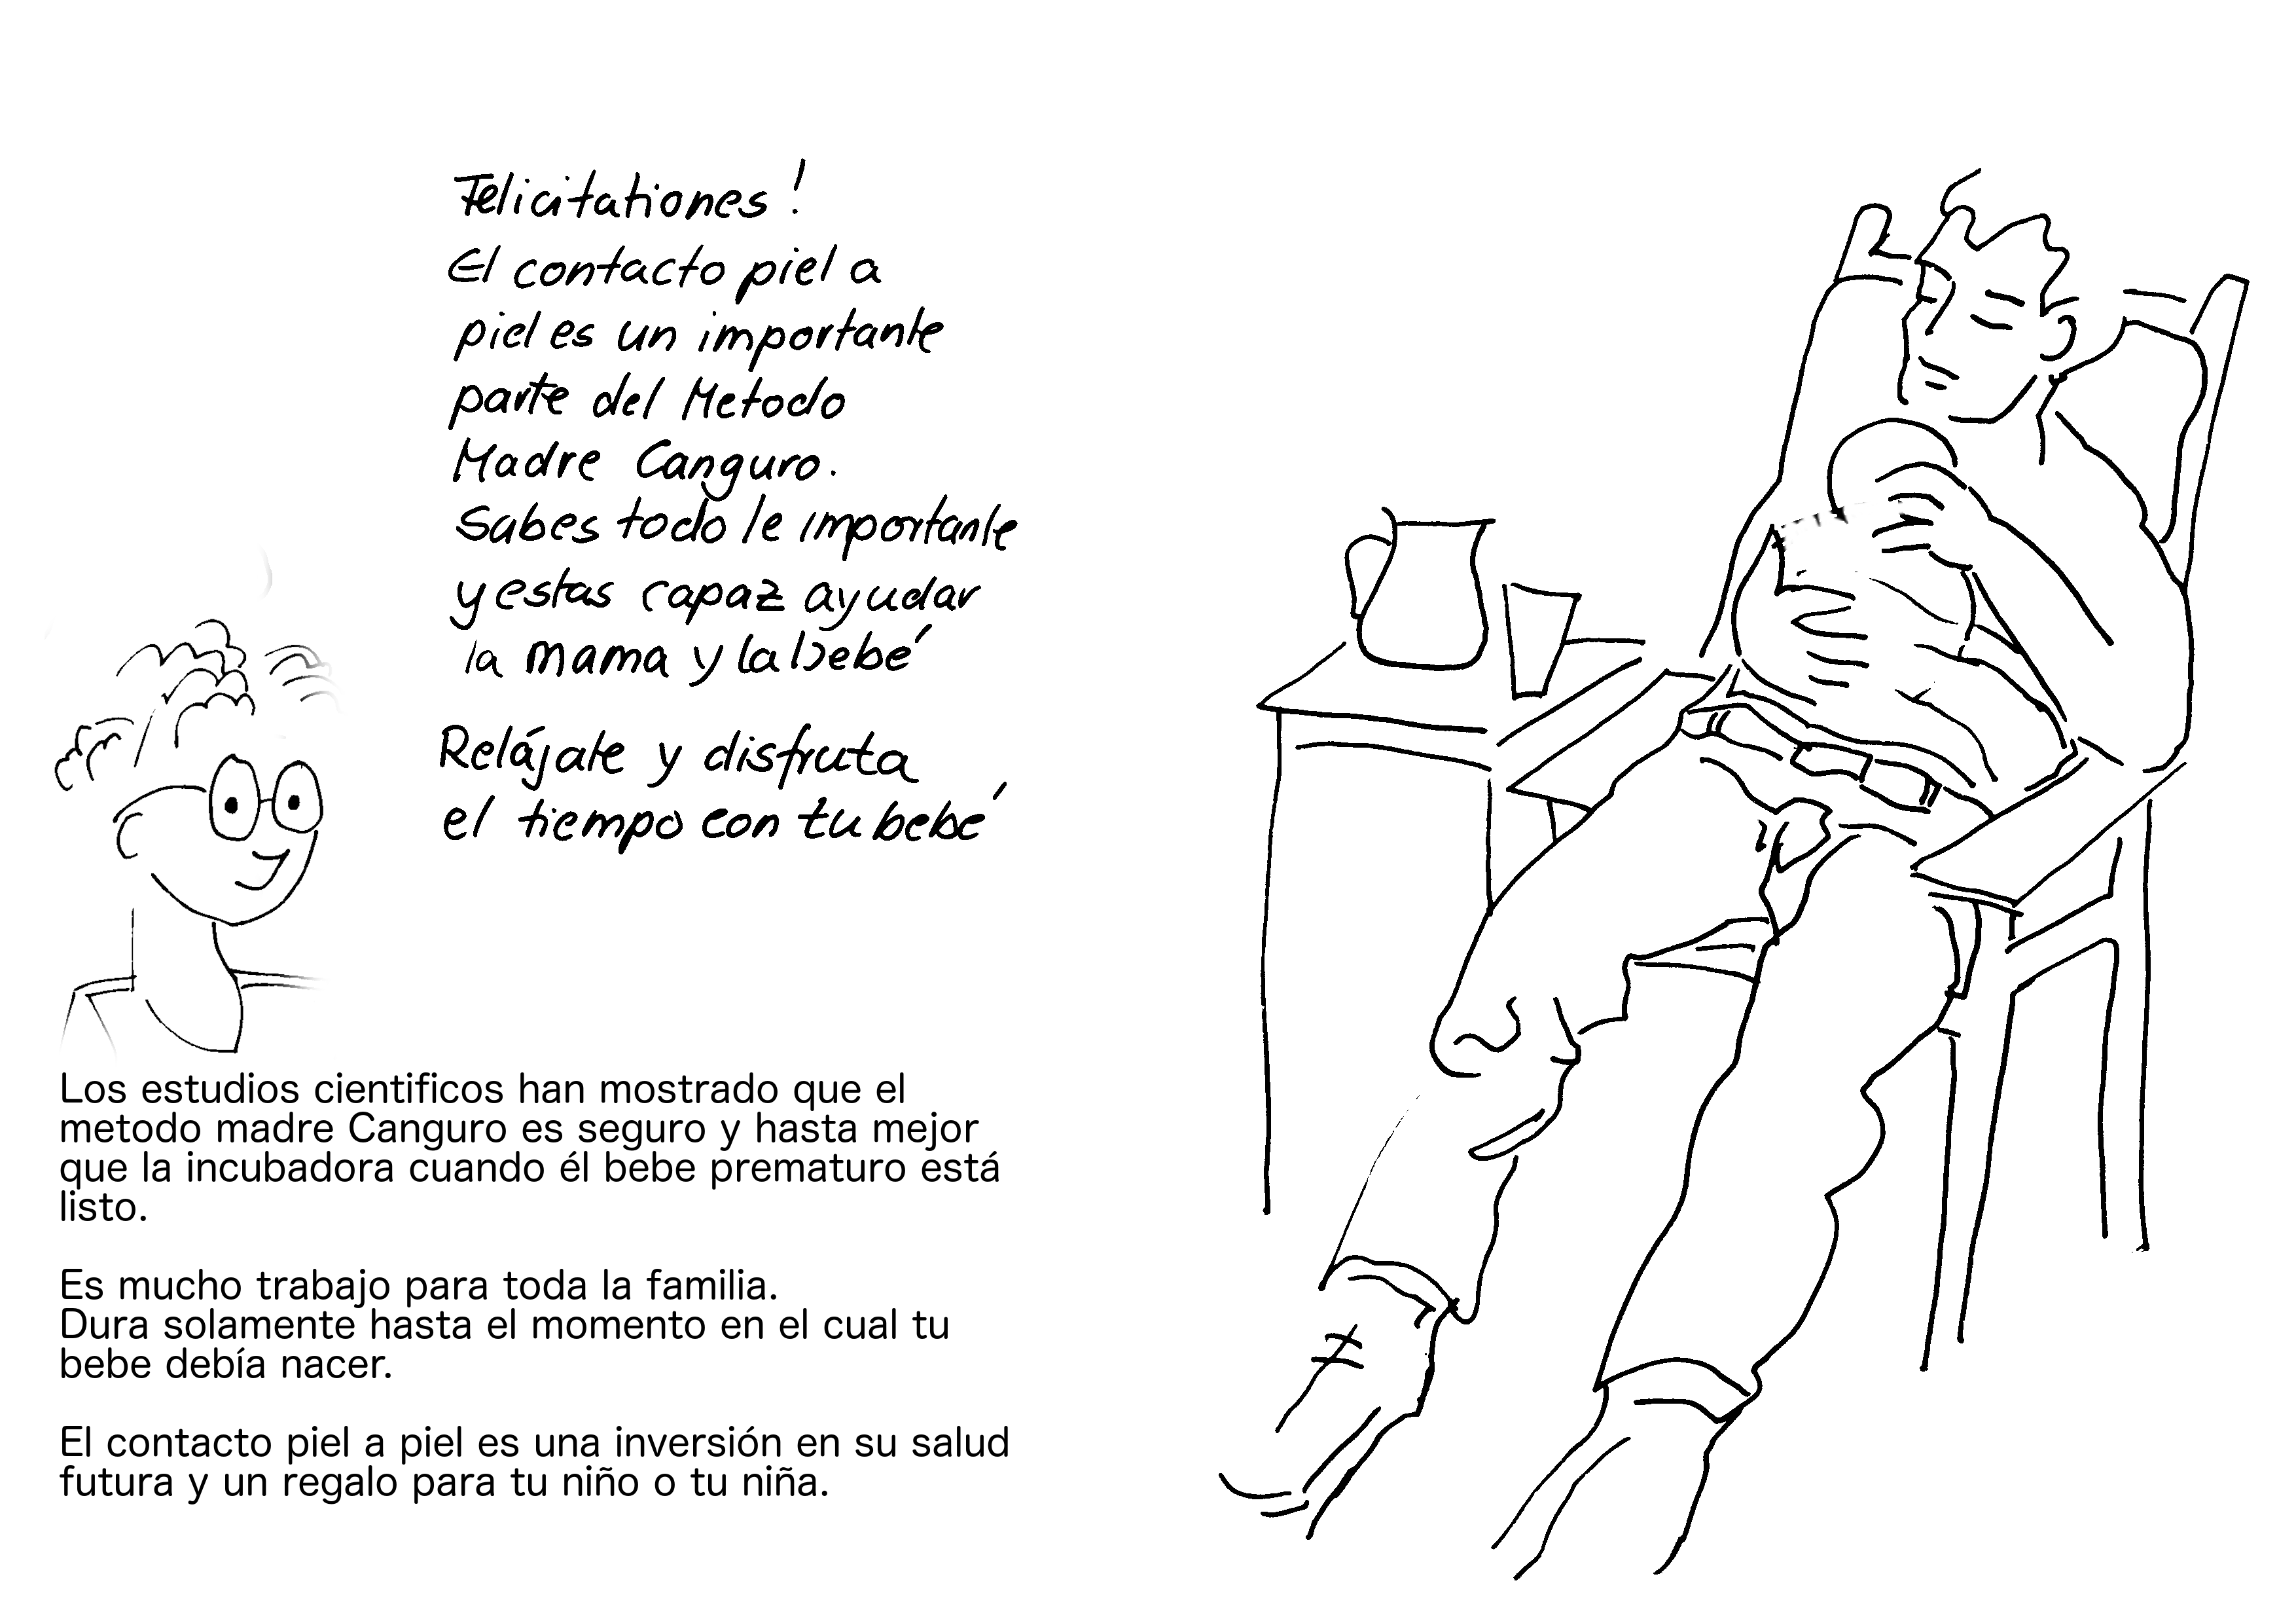 Felicitationes!
El contacto piel a
piel es un importante
parte del Metodo
Madre Canguro.
Sabes todo le importante
y estas capaz ayudar
la mama y la bebé
Relájate y disfruta
el tiempo con tu bebé
Los estudios cientificos han mostrado que el
metodo madre Canguro es seguro y hasta mejor
que la incubadora cuando él bebe prematuro está
listo.
Es mucho trabajo para toda la familia.
Dura solamente hasta el momento en el cual tu
bebe debía nacer.
El contacto piel a piel es una inversión en su salud
futura y un regalo para tu niño o tu niña.